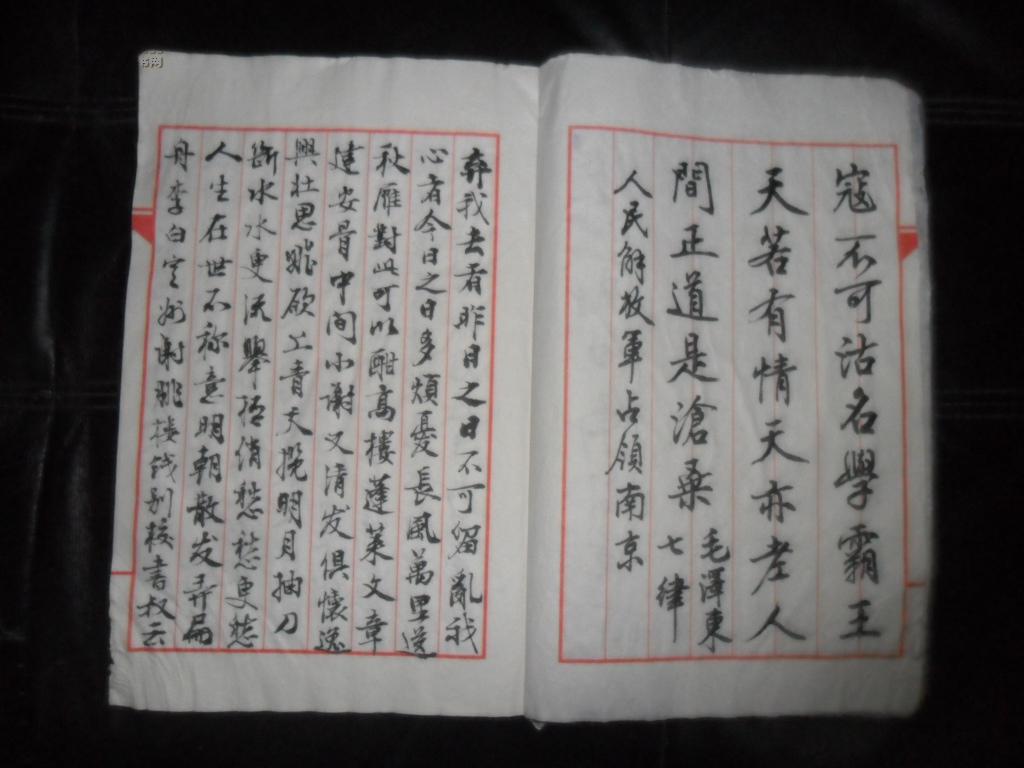 寇不可沽名學霸王
天若有情天亦老人
間正道是滄桑
毛澤東
七律
人民解放軍占領南京
弃我去者昨日之日不可留亂我
心者今日之日多煩憂長風萬里送
秋雁對此可以酣高樓蓬萊文章
建安骨中间小謝又清发俱懷逸
興壯思飛欲上青天攬明月抽刀
斷水水更流舉杯消愁愁更愁
人生在世不称意明朝散发弄扁
舟李白宣州謝朓樓餞别校書叔云